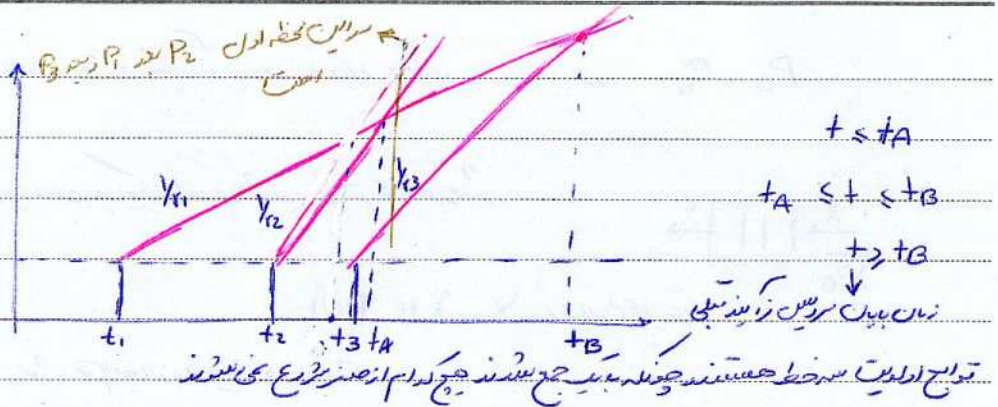 در این لحظه اول P₂ بعد P₁ و بعد P₃
است
1/r₁
1/r₂
1/r₃
t ≤ t_A
t_A ≤ t ≤ t_B
t ≥ t_B
زمان پایان سرویس فرآیند قبلی
t₁ t₂ t₃ t_A t_B
توابع اولویت سه خط هستند چونکه با یک جمع شدند هیچ کدام از صفر شروع نمی شوند